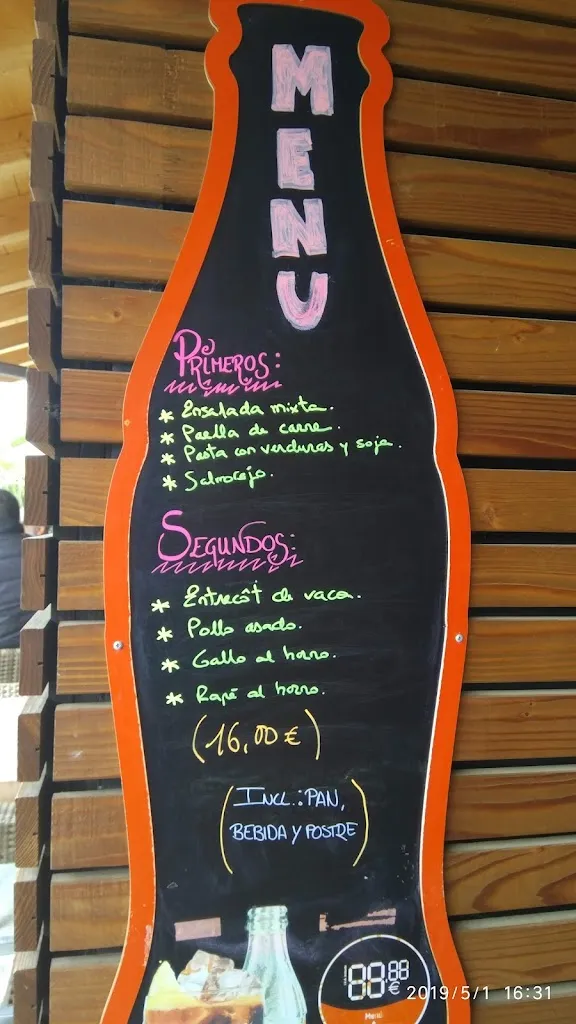 MENU
PRIMEROS:
* Ensalada mixta.
* Paella de carne.
* Pasta con verduras y soja.
* Salmorejo.
SEGUNDOS:
* Entrecôt de vaca.
* Pollo asado.
* Gallo al horno.
* Rapé al horno.
(16,00 €)
(INCL.: PAN,
BEBIDA Y POSTRE)
88,88
€
Menú
2019/5/1 16:31